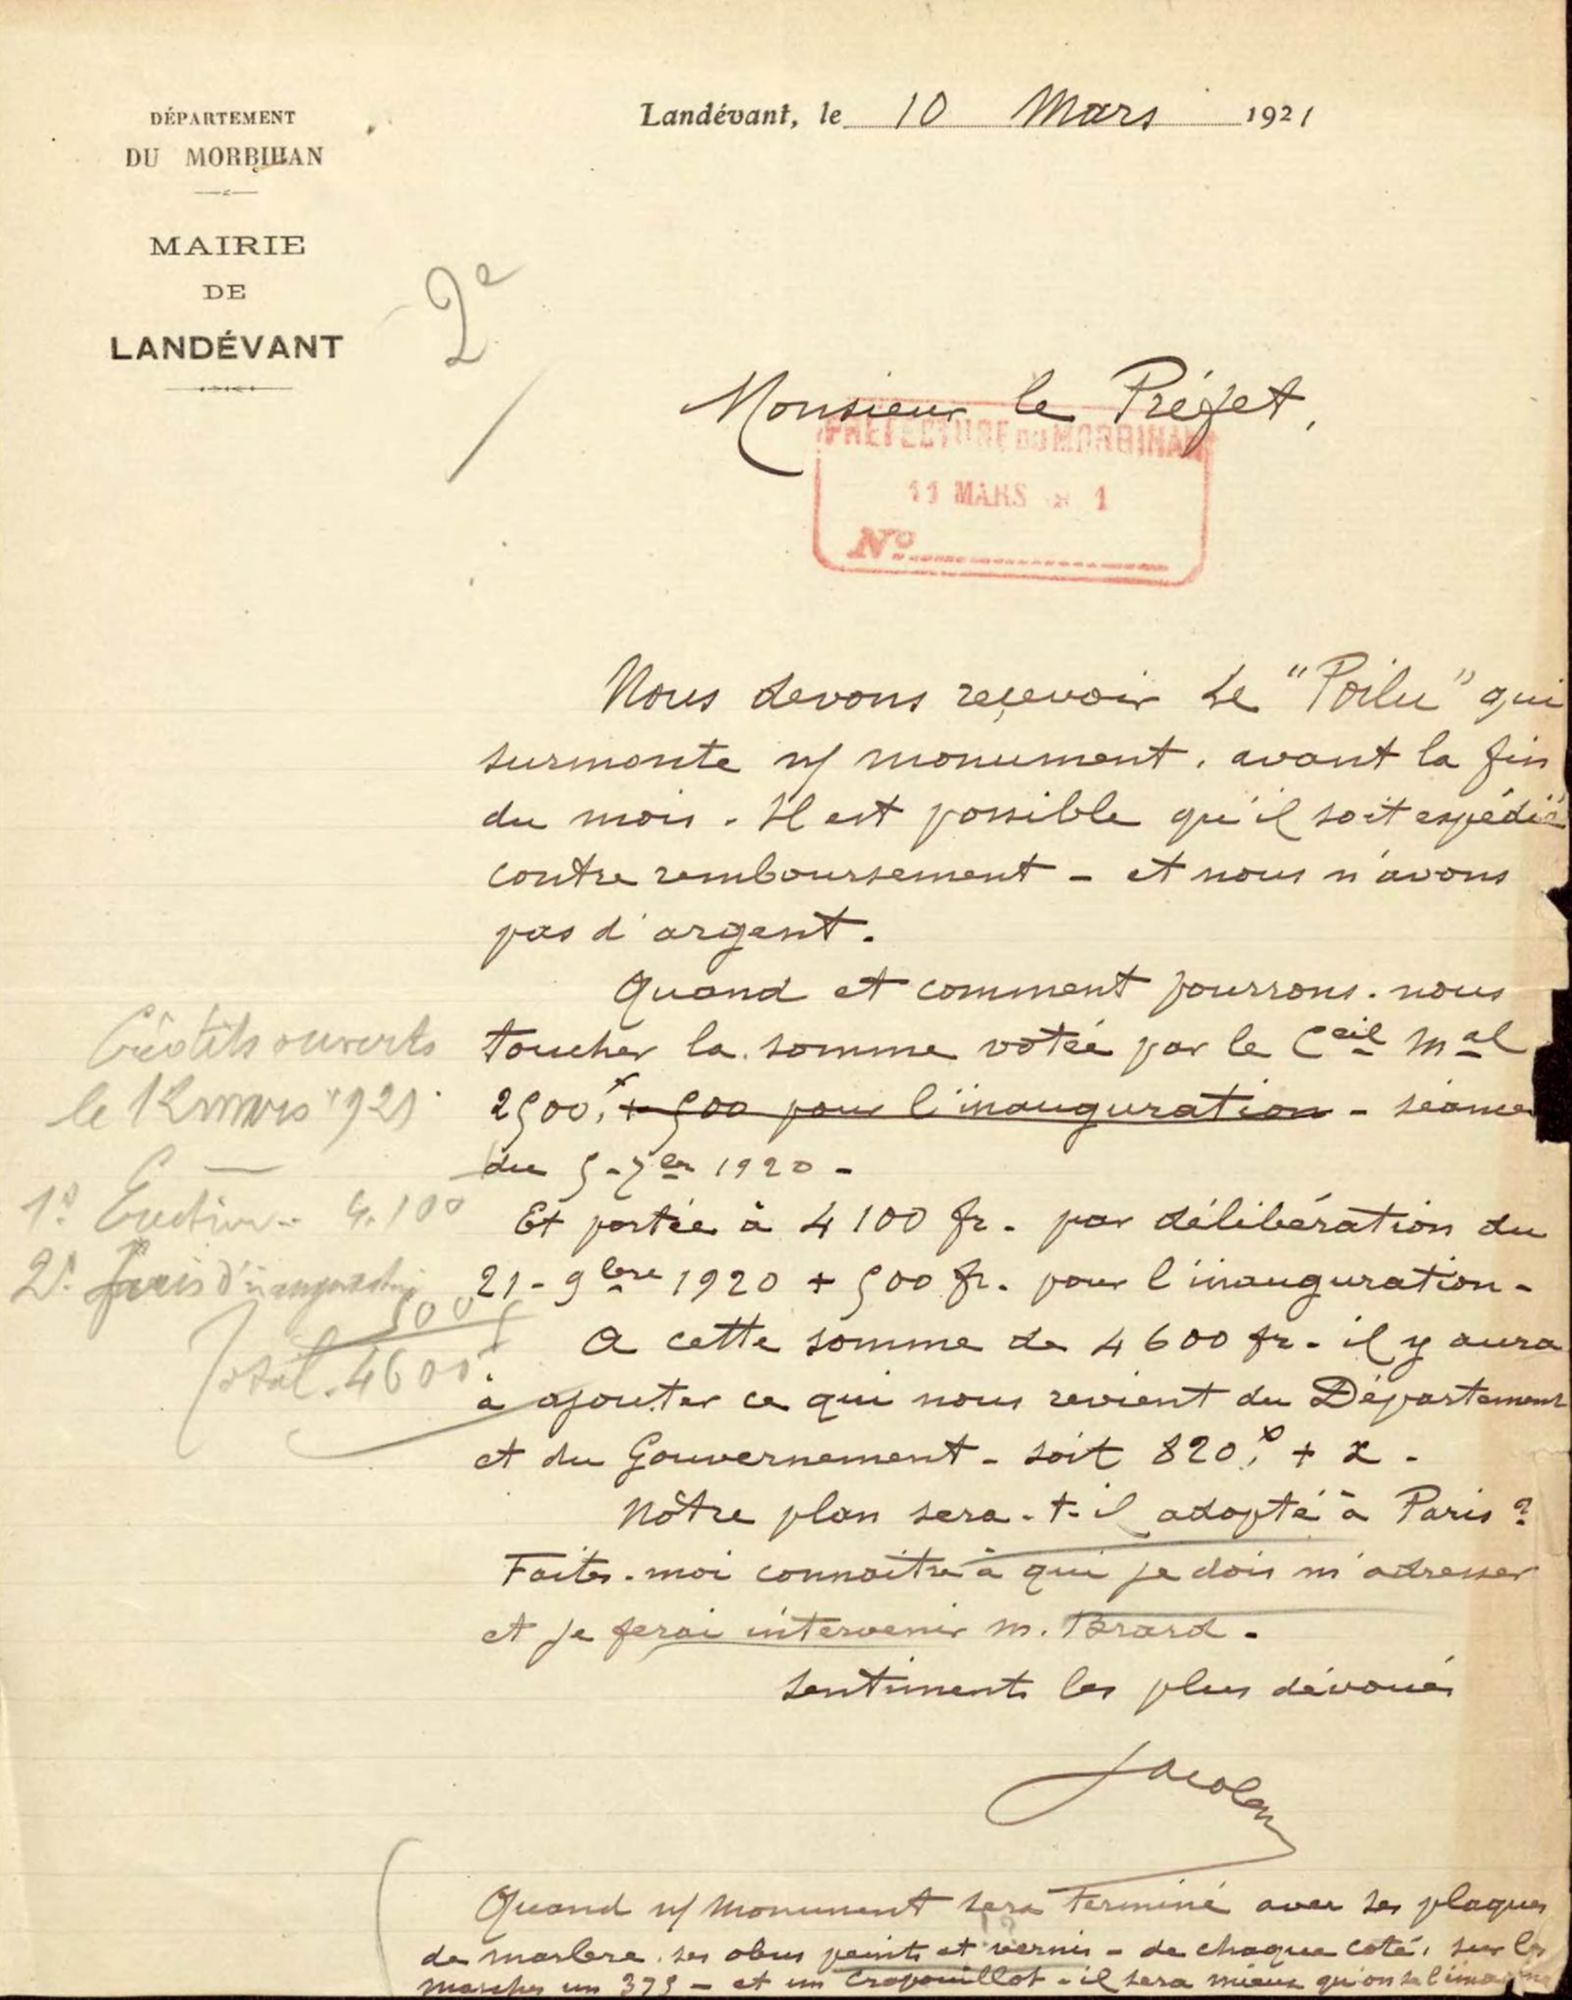 DÉPARTEMENT
DU MORBIHAN
MAIRIE
DE
LANDÉVANT
Landévant, le 10 Mars 1921
2e
Monsieur le Préfet,
PRÉFECTURE DU MORBIHAN
11 MARS 1
No
Nous devons reçevoir Le "Poilu" qui
surmonte n/ monument, avant la fin
du mois. Il est possible qu'il soit expédié
contre remboursement - et nous n'avons
pas d'argent.
Quand et comment pourrons-nous
toucher la somme votée par le Ceil Mal
2500, + 500 pour l'inauguration - séance
du 5-7bre 1920 -
Et portée à 4100 fr. par délibération du
21-9bre 1920 + 500 fr. pour l'inauguration -
A cette somme de 4600 fr. il y aura
à ajouter ce qui nous revient du Département
et du Gouvernement - soit 820, + x .
Nôtre plan sera-t-il adopté à Paris ?
Faites-moi connaitre à qui je dois m'adresser
et je ferai intervenir M. Brard .
Sentiments les plus dévoués
Crédits ouverts
le 12 mars 1921
1° Erection - 4.100
2° frais d'inauguration
500
Total. 4600
Quand n/ monument sera terminé avec ses plaques
de marbre, ses obus peints et vernis - de chaque coté, sur les
marches un 375 - et un Crapouillot - il sera mieux qu'on se l'imagine